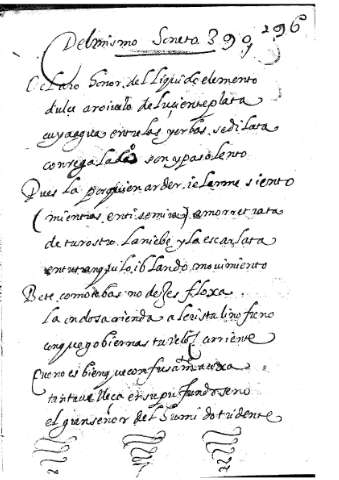 Del mismo Soneto 399 296
O claro Honor del liquido elemento
dulce arroiuelo de luciente plata
cuya agua entre las yerbas se dilata
con regalado son y paso lento
Pues la por quien arder ielarme siento
(mientras enti se mira) amor retrata
de tu rostro la niebe y la escarlata
en tu tranquilo i blando movimiento
Bete como te bas no dexes floxa
la ondosa rienda al cristalino freno
con que gobiernas tu veloz corriente
Que no es bien que confusam.te acoxa
tanta velleça en su profundo seno
el gran señor del humido tridente